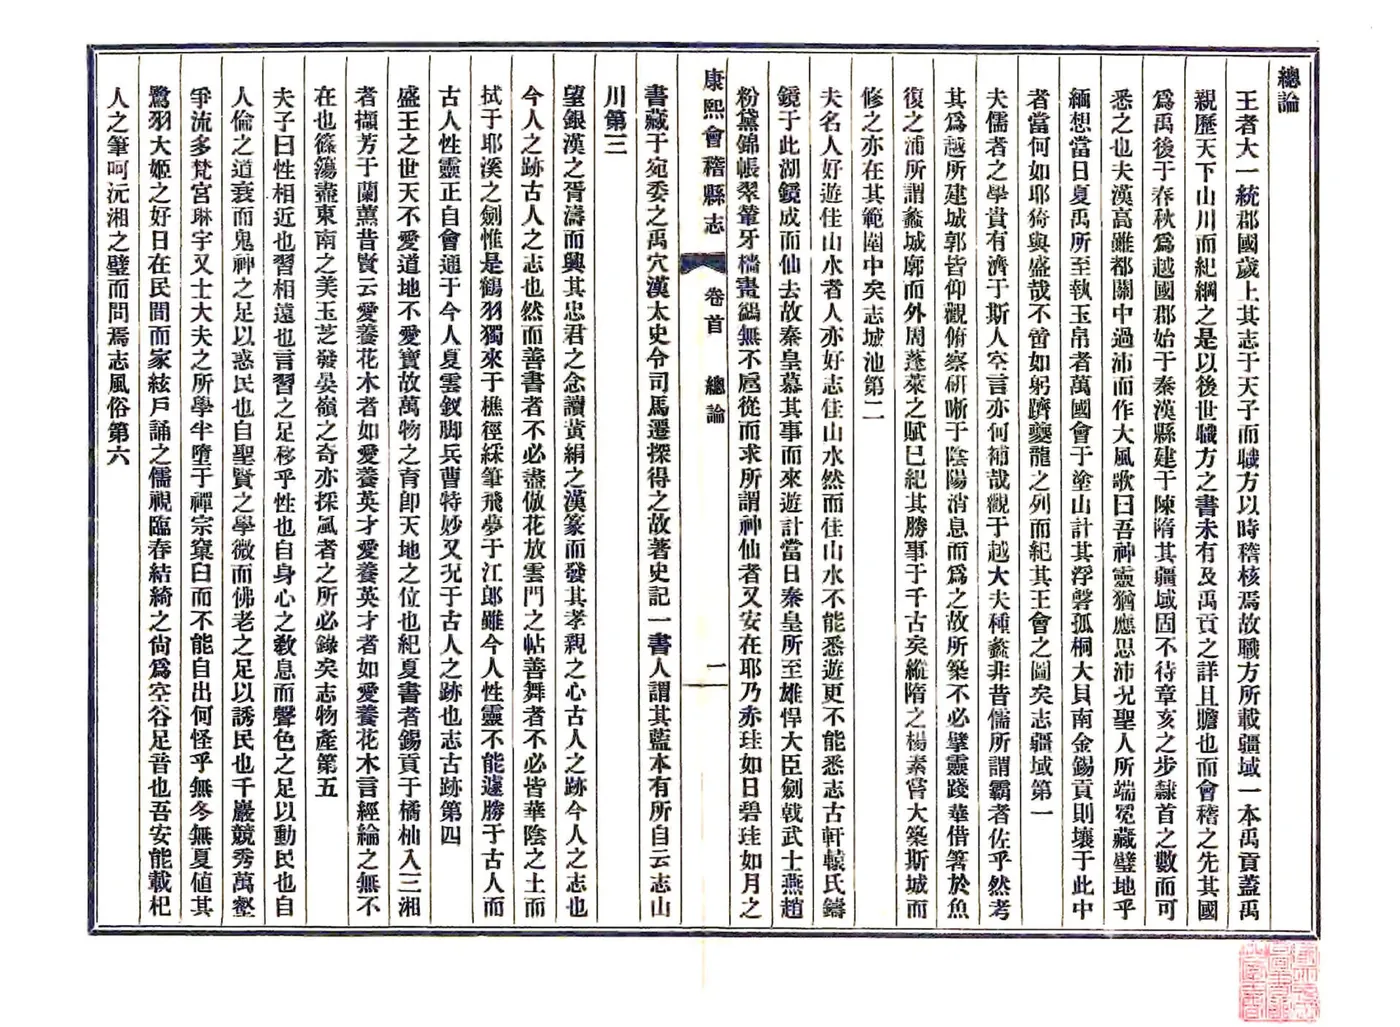 總論
王者大一統郡國歲上其志于天子而職方以時稽核焉故職方所載疆域一本禹貢蓋禹
親歷天下山川而紀綱之是以後世職方之書未有及禹貢之詳且贍也而會稽之先其國
爲禹後于春秋爲越國郡始于秦漢縣建于陳隋其疆域固不待章亥之步隸首之數而可
悉之也夫漢高雖都關中過沛而作大風歌曰吾神靈猶應思沛况聖人所端冕藏璧地乎
緬想當日夏禹所至執玉帛者萬國會于塗山計其浮磬孤桐大貝南金錫貢則壤于此中
者當何如耶猗與盛哉不啻如躬躋夔龍之列而紀其王會之圖矣志疆域第一
夫儒者之學貴有濟于斯人空言亦何補哉觀于越大夫種蠡非昔儒所謂霸者佐乎然考
其爲越所建城郭皆仰觀俯察研晰于陰陽消息而爲之故所築不必擘靈踐華借箸於魚
復之浦所謂蠡城廓而外周蓬萊之賦已紀其勝事于千古矣縱隋之楊素嘗大築斯城而
修之亦在其範圍中矣志城池第二
夫名人好遊佳山水者人亦好志佳山水然而佳山水不能悉遊更不能悉志古軒轅氏鑄
鏡于此湖鏡成而仙去故秦皇慕其事而來遊計當日秦皇所至雄悍大臣劍戟武士燕趙
粉黛錦帳翠輦牙檣畫鷁無不扈從而求所謂神仙者又安在耶乃赤珪如日碧珪如月之
康熙會稽縣志 卷首 總論 一
書藏于宛委之禹穴漢太史令司馬遷探得之故著史記一書人謂其藍本有所自云志山
川第三
望銀漢之胥濤而興其忠君之念讀黃絹之漢篆而發其孝親之心古人之跡今人之志也
今人之跡古人之志也然而善書者不必盡倣花放雲門之帖善舞者不必皆華陰之土而
拭于耶溪之劍惟是鶴羽獨來于樵徑綵筆飛夢于江郎雖今人性靈不能遽勝于古人而
古人性靈正自會通于今人夏雲釵脚兵曹特妙又况于古人之跡也志古跡第四
盛王之世天不愛道地不愛寶故萬物之育即天地之位也紀夏書者錫貢于橘柚入三湘
者擷芳于蘭薰昔賢云愛養花木者如愛養英才愛養英才者如愛養花木言經綸之無不
在也篠簜盡東南之美玉芝發晏嶺之奇亦採風者之所必錄矣志物產第五
夫子曰性相近也習相遠也言習之足移乎性也自身心之教息而聲色之足以動民也自
人倫之道衰而鬼神之足以惑民也自聖賢之學微而佛老之足以誘民也千巖競秀萬壑
爭流多梵宮琳宇又士大夫之所學半墮于禪宗窠臼而不能自出何怪乎無冬無夏値其
鷺羽大姬之好日在民間而家絃戶誦之儒視臨春結綺之尙爲空谷足音也吾安能載杞
人之筆呵沅湘之壁而問焉志風俗第六